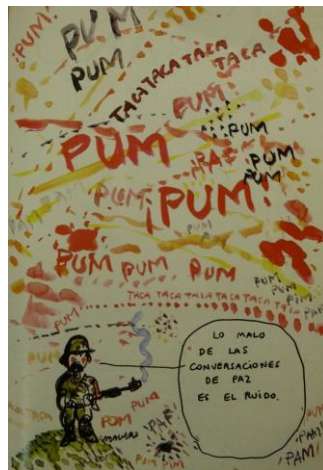 ¡PUM!
PUM
PUM
TACA TACA TACA
TACA
PUM
PUM
PUM
PAF
PUM
PUM
PUM
¡PUM!
PAM PAM
PUM
PUM PUM PUM
TACA TACA TACA TACA TACA TACA
PUM
PUM
PIM
PUM
LO MALO
DE LAS
CONVERSACIONES
DE PAZ
ES EL RUIDO.
PUM
PUM
POM
PAF
PUM PIM
PAM
¡PAM!